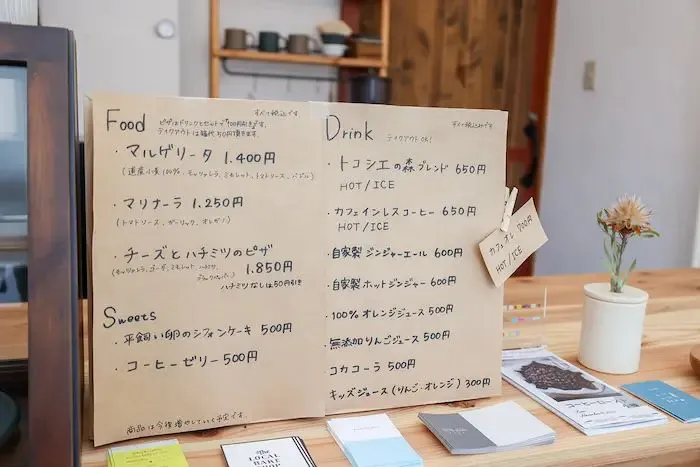 Food
すべて税込みです
ピザはドリンクとセットで100円引きです。
テイクアウトは箱代50円頂きます。
・マルゲリータ 1.400円
(道産小麦100%、モッツァレラ、ミモレット、トマトソース、バジル)
・マリナーラ 1.250円
(トマトソース、ガーリック、オレガノ)
・チーズとハチミツのピザ
1.850円
ハチミツなしは50円引き
Sweets
・平飼い卵のシフォンケーキ 500円
・コーヒーゼリー 500円
商品は今後増やしていく予定です
Drink
すべて税込みです
テイクアウトOK!
・トコシエの森ブレンド 650円
HOT/ICE
・カフェインレスコーヒー 650円
HOT/ICE
・自家製ジンジャーエール 600円
・自家製ホットジンジャー 600円
・100%オレンジジュース 500円
・無添加りんごジュース 500円
・コカコーラ 500円
・キッズジュース(りんご・オレンジ) 300円
カフェオレ 700円
HOT/ICE
the
LOCAL
BAKE